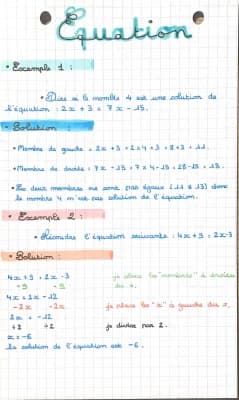 Equation
• Exemple 1 :
• Dire si le nombre 4 est une solution de
l'équation : 2x + 3 = 7x - 15.
- Solution :
• Membre de gauche = 2x + 3 = 2x4 + 3 = 8+3 = 11.
• Membre de droite = 7x - 15 = 7 x 4 - 15 = 28 - 15 = 13.
• Les deux membres ne sont pas égaux (11 ≠ 13) donc
le nombre 4 n'est pas solution de l'équation.
• Exemple 2 :
• Résoudre l'équation suivante : 4x + 9 = 2x - 3
• Solution :
4x + 9 = 2x - 3 je place les "nombres" à droite
- 9 - 9 du x.
4x = 2x - 12
-2x -2x je place les "x" à gauche du x.
2x = - 12
÷2 ÷2 je divise par 2.
x = -6
la solution de l'équation est -6.